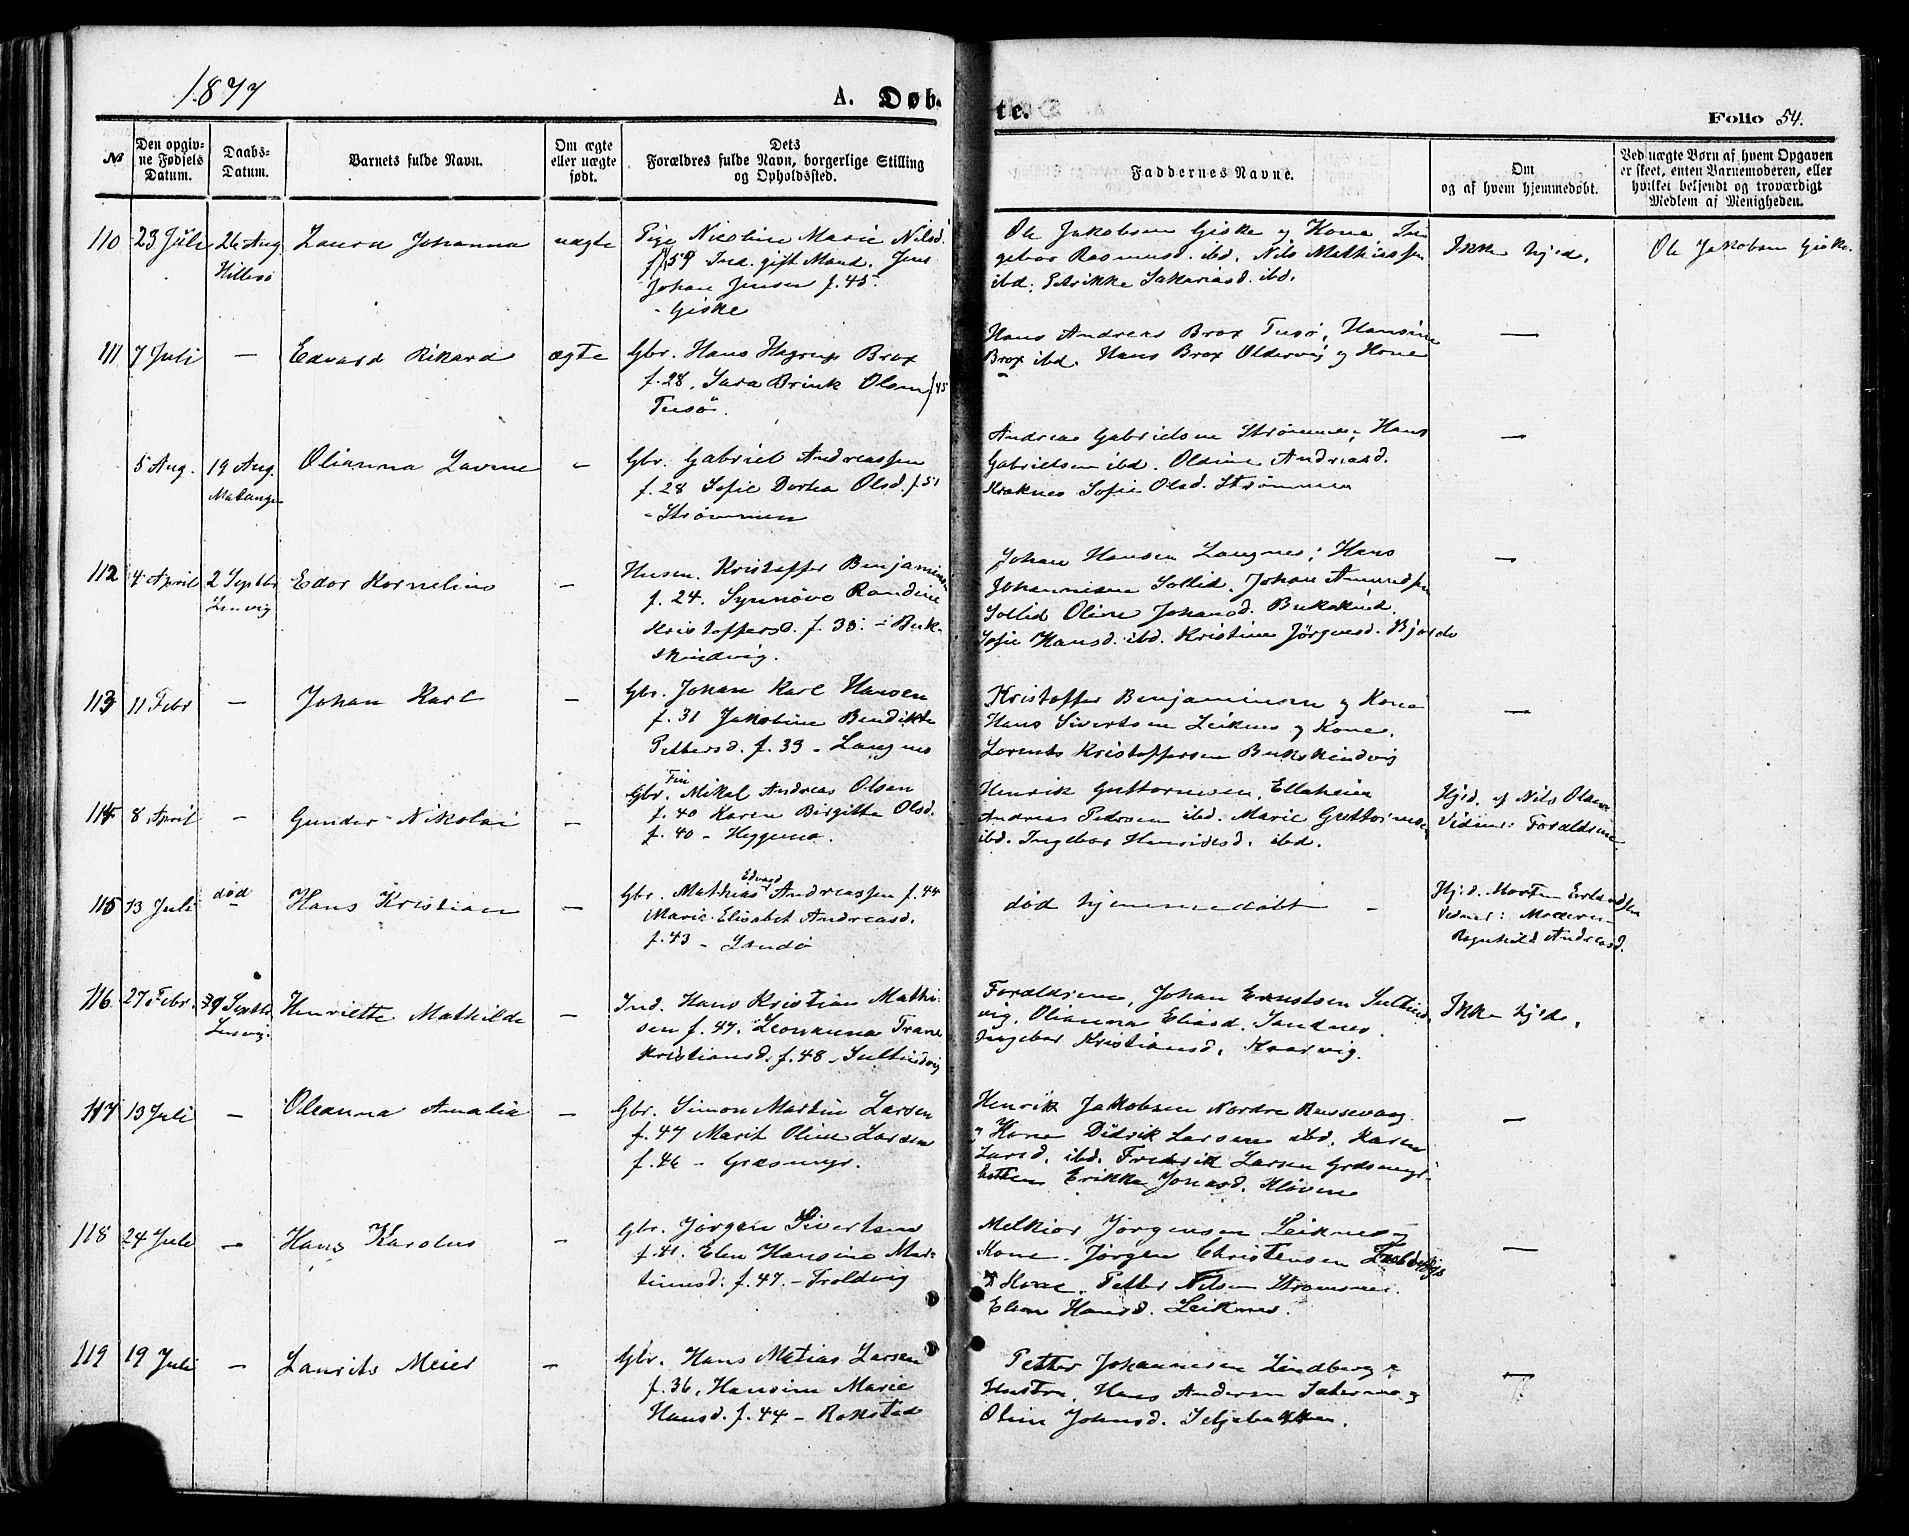 1877
A. Døb-
te.
Folio 54.
№
Den opgiv-
ne Fødsels
Datum.
Daabs-
Datum.
Barnets fulde Navn.
Om ægte
eller uægte
født.
Dets
Forældres fulde Navn, borgerlige Stilling
og Opholdssted.
Faddernes Navne.
Om
og af hvem hjemmedøbt.
Ved uægte Børn af hvem Opgaven
er skeet, enten Barnemoderen, eller
hvilket bekjendt og troværdigt
Medlem af Menigheden.
110 23 Juli 26 Aug
Hillesø
Laura Johanna
uægte
Pige Nicoline Marie Nilsd.
f. 59 Ind. gift Mand. Jens
Johan Jensen f. 45
- Giske
Ole Jakobsen Giske og Kone In-
gebor Rasmusd. ibd. Nils Mathiassen
ibd. Petrikke Sakariasd. ibd.
Ikke hjed.
Ole Jakobsen Giske
111 7 Juli —
Edvard Rikard
ægte
Gbr. Hans Hagrup Brox
f. 28, Sara Brink Olsen f 45
Tusø.
Hans Andreas Brox Tusø, Hansine
Brox ibd. Hans Brox Oldervig og Kone
—
5 Aug. 19 Aug.
Malangen
Olianna Lavine
-
Gbr. Gabriel Andreassen
f. 28 Sofie Dortea Olsd. f. 51
- Strømmen
Andreas Gabrielsen Strømmen, Hans
Gabrielsen ibd. Oldine Andreasd.
Kraknes Sofie Olsd. Strømmen
—
112 4 April 2 Septbr
Lenvig
Edor Kornelius
-
Husm. Kristoffer Benjaminsen
f. 24. Synnøve Randine
Kristoffersd. f. 35. - Buk-
skindvig.
Johan Hansen Langnes; Hans
Johannesen Sollid. Johan Amundsen
Sollid Oline Johansd. Bukskind.
Sofie Hansd. ibd. Kristine Jørgensd. Bjorde
—
113 11 Febr —
Johan Karl
-
Gbr. Johan Karl Hansen
f. 31 Jakobine Bendikte
Pettersd. f. 39 - Langnes
Kristoffer Benjaminsen og Kone
Hans Sivertsen Leiknes og Kone.
Lorents Kristoffersen Bukskindvig
—
114 8 April -
Gunder Nikolai
-
Fin
Gbr. Mikal Andreas Olsen
f. 40 Karen Birgitte Olsd.
f. 40 - Heggemo.
Henrik Guttormsen, Ellaheien
Andreas Pedersen ibd. Marie Guttormsen
ibd. Ingebor Henriksd. ibd.
Hjd. af Nils Olsen
Vidner: Forældrene
115 13 Juli død
Hans Kristian
-
Edvard
Gbr. Mathias Andreassen f. 44
Marie Elisabet Andreasd.
f. 43 - Sandø
død hjemmedøbt -
Hjd. Morten Erlandsen
Vidner: Moderen
Ragnhild Andreasd.
116 27 Febr. 9 Septbr
Lenvig.
Henriette Mathilde
-
Ind. Hans Kristian Mathi-
sen f. 47. Leonanna Trane
Kristiansd. f. 48 - Sultindvig
Forældrene, Johan Ernstsen Sultind-
vig. Olianna Eliasd. Sandnes.
Ingebor Kristiansd. Kaarvig.
Ikke hjed.
117 13 Juli -
Oleanna Amalie
-
Gbr. Simon Martin Larsen
f. 47 Marit Oline Larsen
f. 46 - Græsmyr.
Henrik Jakobsen Nordre Russevaag
og Kone Didrik Larsen ibd. Karen
Larsd. ibd. Fredrik Larsen Græsmyr-
botten Erikke Jonasd. Kløven
—
118 24 Juli -
Hans Karolus
-
Gbr. Jørgen Sivertsen
f. 41. Elen Hansine Mar-
tinusd. f. 47. - Troldvig
Melkior Jørgensen Leiknes og
Kone. Jørgen Christensen Troldvig
og Kone. Petter Nilsen Stromsnes.
Elen Hansd. Leiknes.
—
119 19 Juli -
Laurits Meier
-
Gbr. Hans Matias Larsen
f. 36, Hansine Marie
Hansd. f. 44 - Rokstad
Petter Johannesen Lindberg og
Hustru, Hans Andersen og
Oline Johnsd. Seljebakken.
—